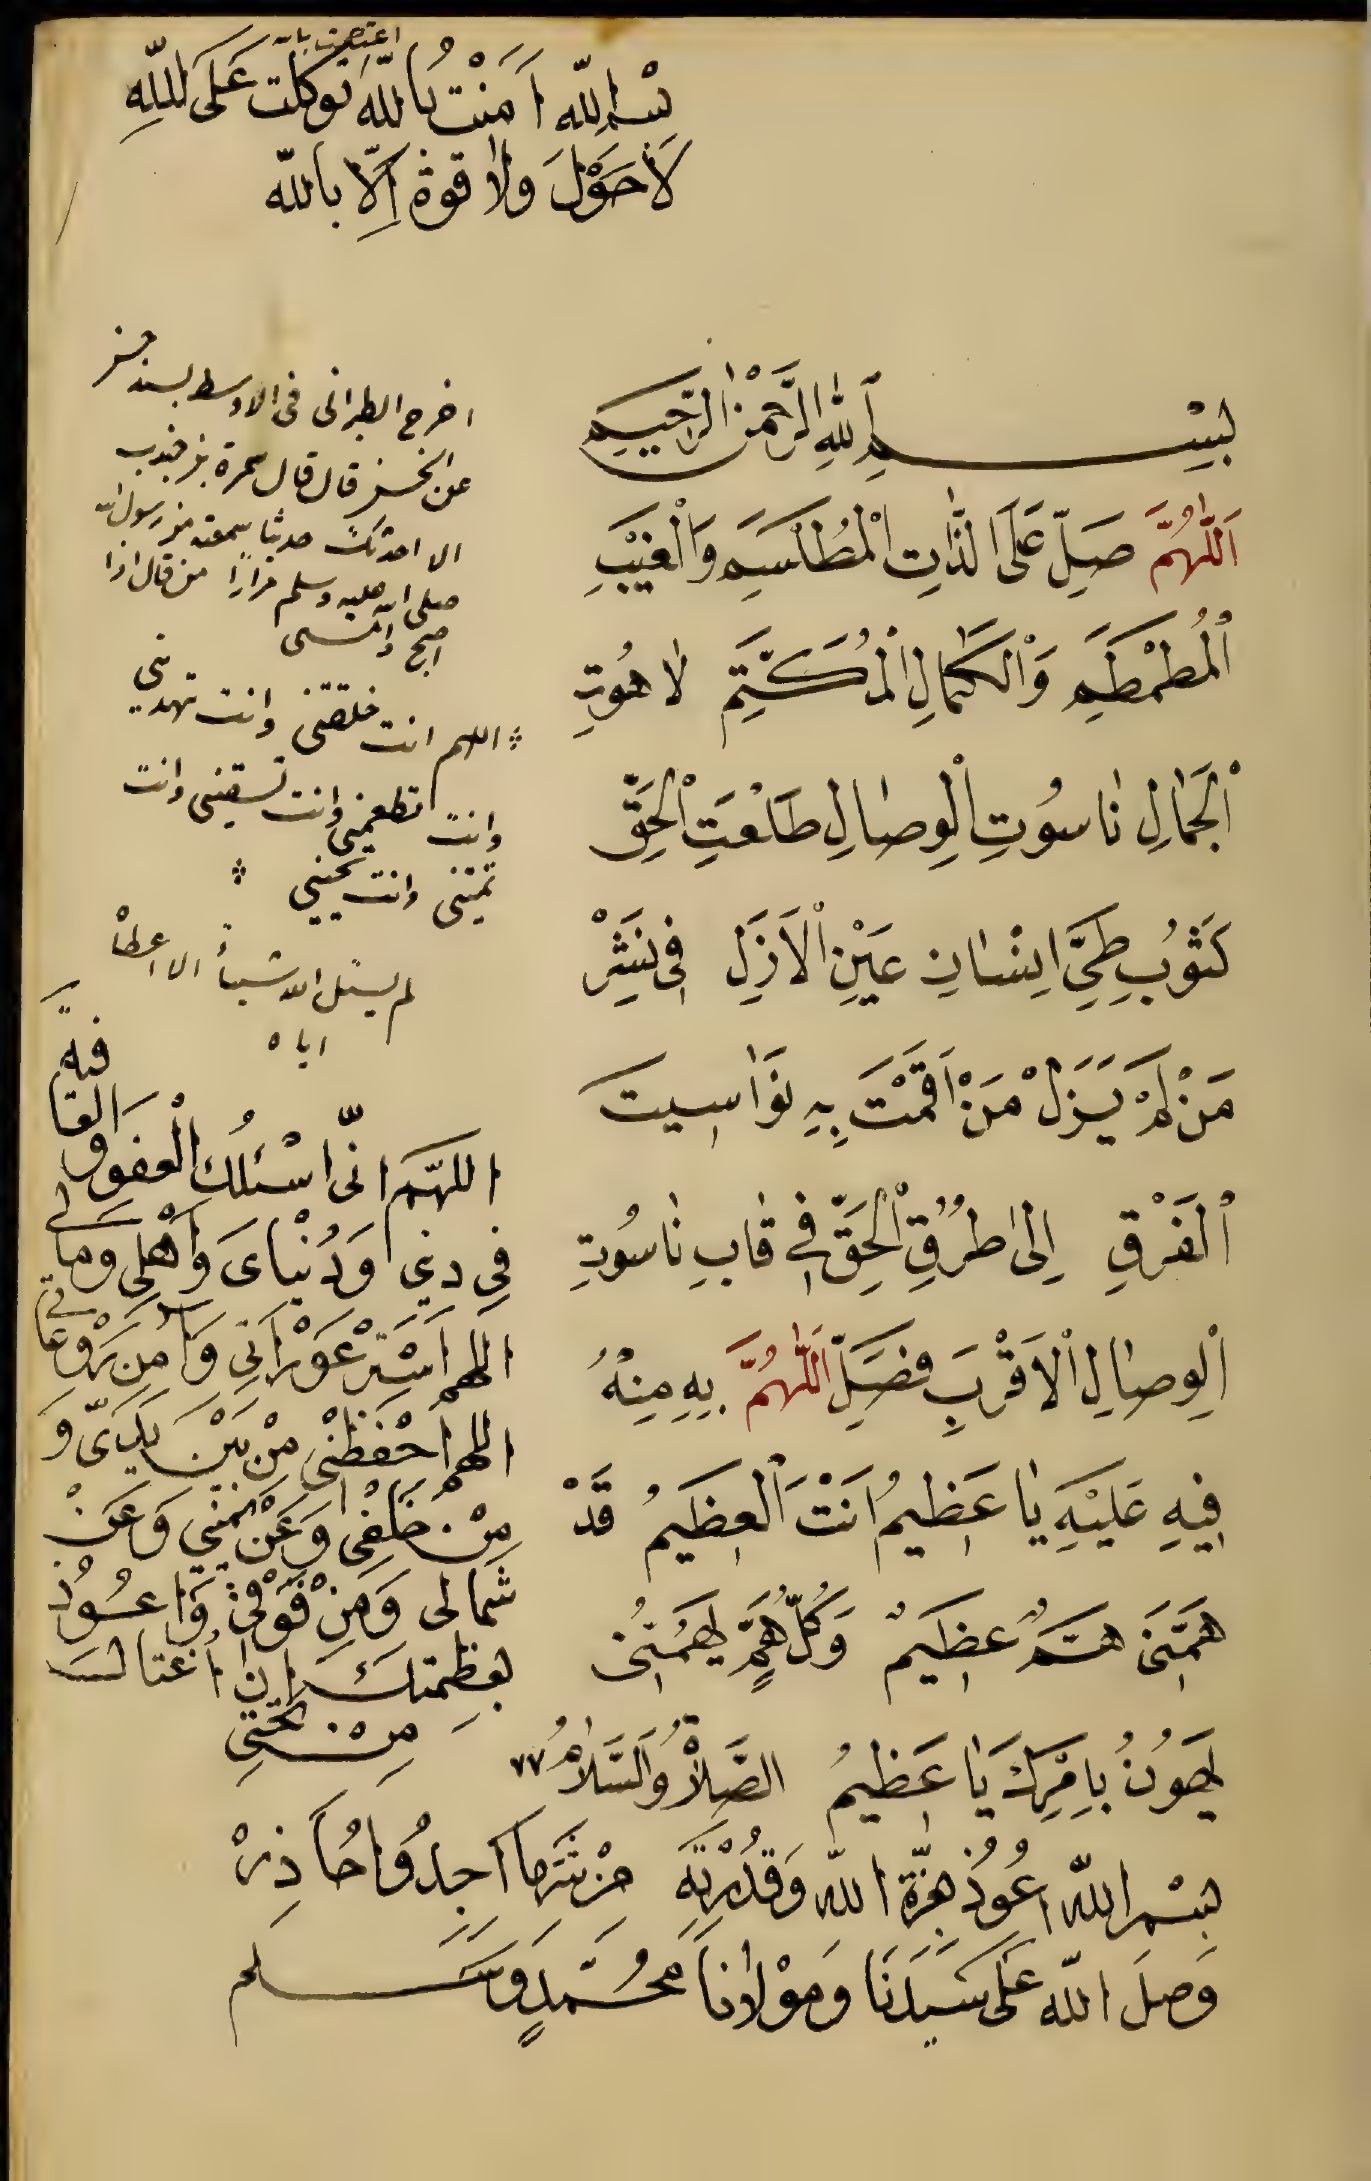 اعتصمت بالله
بِسْمِ اللّٰه اٰمَنْتُ بالله تَوكلت عَلَى اللهِ
لَا حَوْلَ ولا قوة اِلّا بالله
بِسْمِ اللهِ الرَّحْمٰنِ الرَّحِيمِ
اَللّٰهُمَّ صَلِّ عَلَى الذَّاتِ الْمُطَلْسَمِ وَالْغَيْبِ
الْمُطَمْطَمِ وَالْكَمَالِ الْمُكَتَّمِ لاهُوتِ
الْجَمَالِ نَاسُوتِ الْوِصَالِ طَلْعَتِ الْحَقِّ
كَثَوْبِ طَيِّ اِنْسَانِ عَيْنِ الْاَزَلِ فِى نَشْرِ
مَنْ لَمْ يَزَلْ مَنْ اَقَمْتَ بِهِ نَوَاسِيتَ
الْفَرْقِ اِلى طُرُقِ الْحَقِّ فِى قَابِ نَاسُوتِ
الْوِصَالِ الْاَقْرَبِ فَصَلِّ اَللّٰهُمَّ بِهِ مِنْهُ
فِيهِ عَلَيْهِ يَا عَظِيمُ اَنْتَ الْعَظِيمُ قَدْ
هَمَّنِى هَمٌّ عَظِيمٌ وَكُلُّ هَمٍّ يَهُمُّنِى
يَهُونُ بِاَمْرِكَ يَا عَظِيمُ الصَّلَاةُ وَالسَّلَامُ ٧٧
بِسْمِ اللّٰه اَعُوذُ بِعِزَّةِ اللّٰه وَقُدْرَتِهِ مِنْ شَرِّ مَا اَجِدُ وَاُحَاذِرْ
وَصَلَ اللّٰه عَلَى سَيِّدَنَا وَمَوْلَانَا مُحَمَّدٍ وَسَلم
اخرج الطبرانى فى الاوسط بسند حسن
عن الحسن قال قال سمرة بن جندب
الا احدثك حديثا سمعته من رسول الله
صلى الله عليه وسلم مرارًا من قال اذا
اصبح واذا امسى
اللهم انت خلقتنى وانت تهدينى
وانت تطعمنى وانت تسقينى وانت
تميتنى وانت تحيينى
لم يسئل الله شيئاً الا اعطاه
اياه
اللهم انّى اسْئلُك الْعفو والعافية
فِى دينى وَدُنْيَاىَ وَاَهْلِى ومالى
اللهم اسْتر عَوْرَاتِى وَاٰمِن رَوْعاتى
اللهم احْفظْنى مِنْ بَيْن يَدَىّ وَ
مِنْ خَلْفِى وَعَنْ يَمِينِى وَعَنْ
شمالى وَمِنْ فَوْقى وَاَعُوذُ
بعَظِمتك اَن اُغتالَ
مِنْ تحتِى